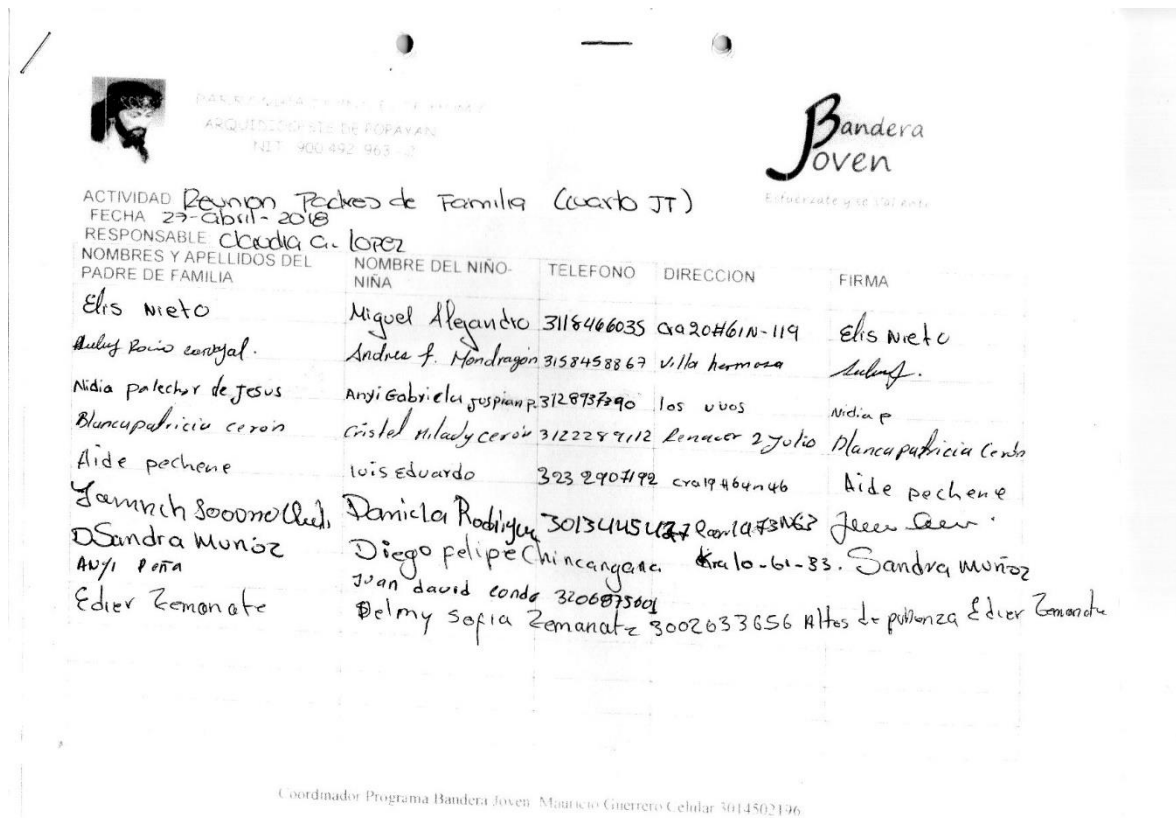 ARQUIDIOCESIS DE POPAYAN
NIT 900 492 963 - 2
Bandera
Joven
ACTIVIDAD Reunion Padres de Familia (cuarto JT)
FECHA 27-abril-2018
RESPONSABLE Claudia G. Lopez
NOMBRES Y APELLIDOS DEL PADRE DE FAMILIA NOMBRE DEL NIÑO-NIÑA TELEFONO DIRECCION FIRMA
Elis Nieto Miguel Alejandro 3118466035 cra20#61N-119 Elis Nieto
Rocio carvajal. Andres f. Mondragon 3158458867 villa hermosa
Nidia palechor de Jesus Anyi Gabriela juspian p. 3128937390 los uvos Nidia p
Blancapatricia ceron Cristel Milady ceron 3122289112 Renacer 2 Julio Blanca patricia Ceron
Aide pechene luis Eduardo 3232907192 cra19#64n46 Aide pechene
Daniela
Sandra Munoz Diego felipe Chincangana Kra10-61-33. Sandra Muñoz
Anyi Peña Juan david conde 3206875601
Edier Zemanate Delmy Sofia Zemanate 3002633656 Altos de Edier Zemanate
Coordinador Programa Bandera Joven Mauricio Guerrero Celular 3014502196